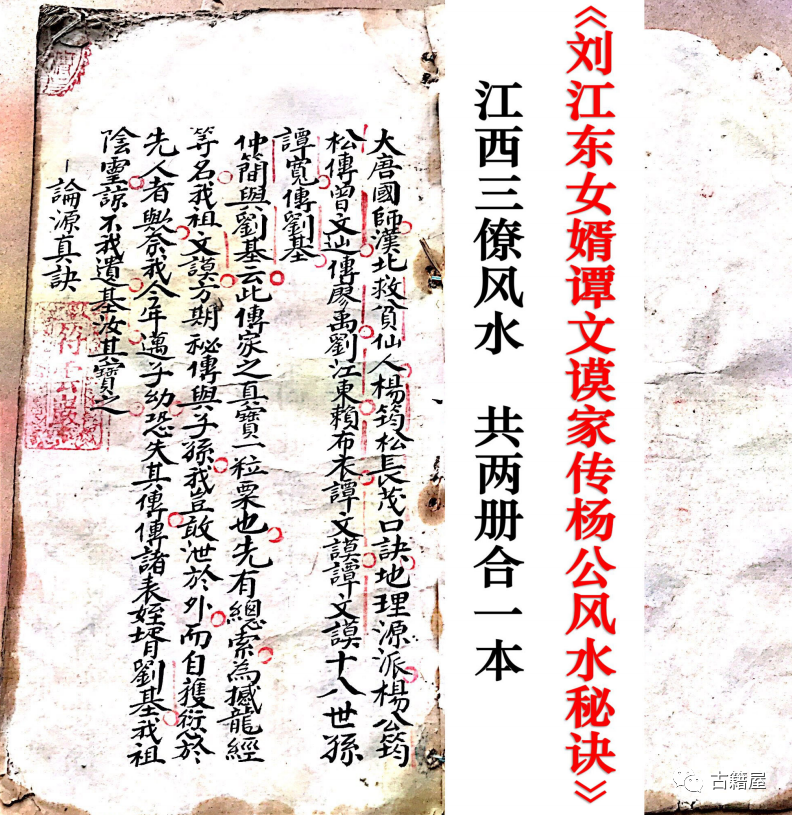 《刘江东女婿谭文谟家传杨公风水秘诀》
江西三僚风水 共两册合一本
大唐國師漢北救貧仙人楊筠松長茂口訣地理源派楊公筠
松傳曾文辿傳廖禹劉江東賴布衣譚文謨譚文謨十八世孫
譚寬傳劉基
仲簡與劉基云此傳家之真寶一粒粟也先有總索為撼龍經
等名我祖文謨方期祕傳與子孫我豈敢泄於外而自獲愆於
先人者與奈我今年邁子幼恐失其傳傳諸表姪壻劉基我祖
陰靈諒不我遺基汝其寶之
一論源真訣
古籍屋